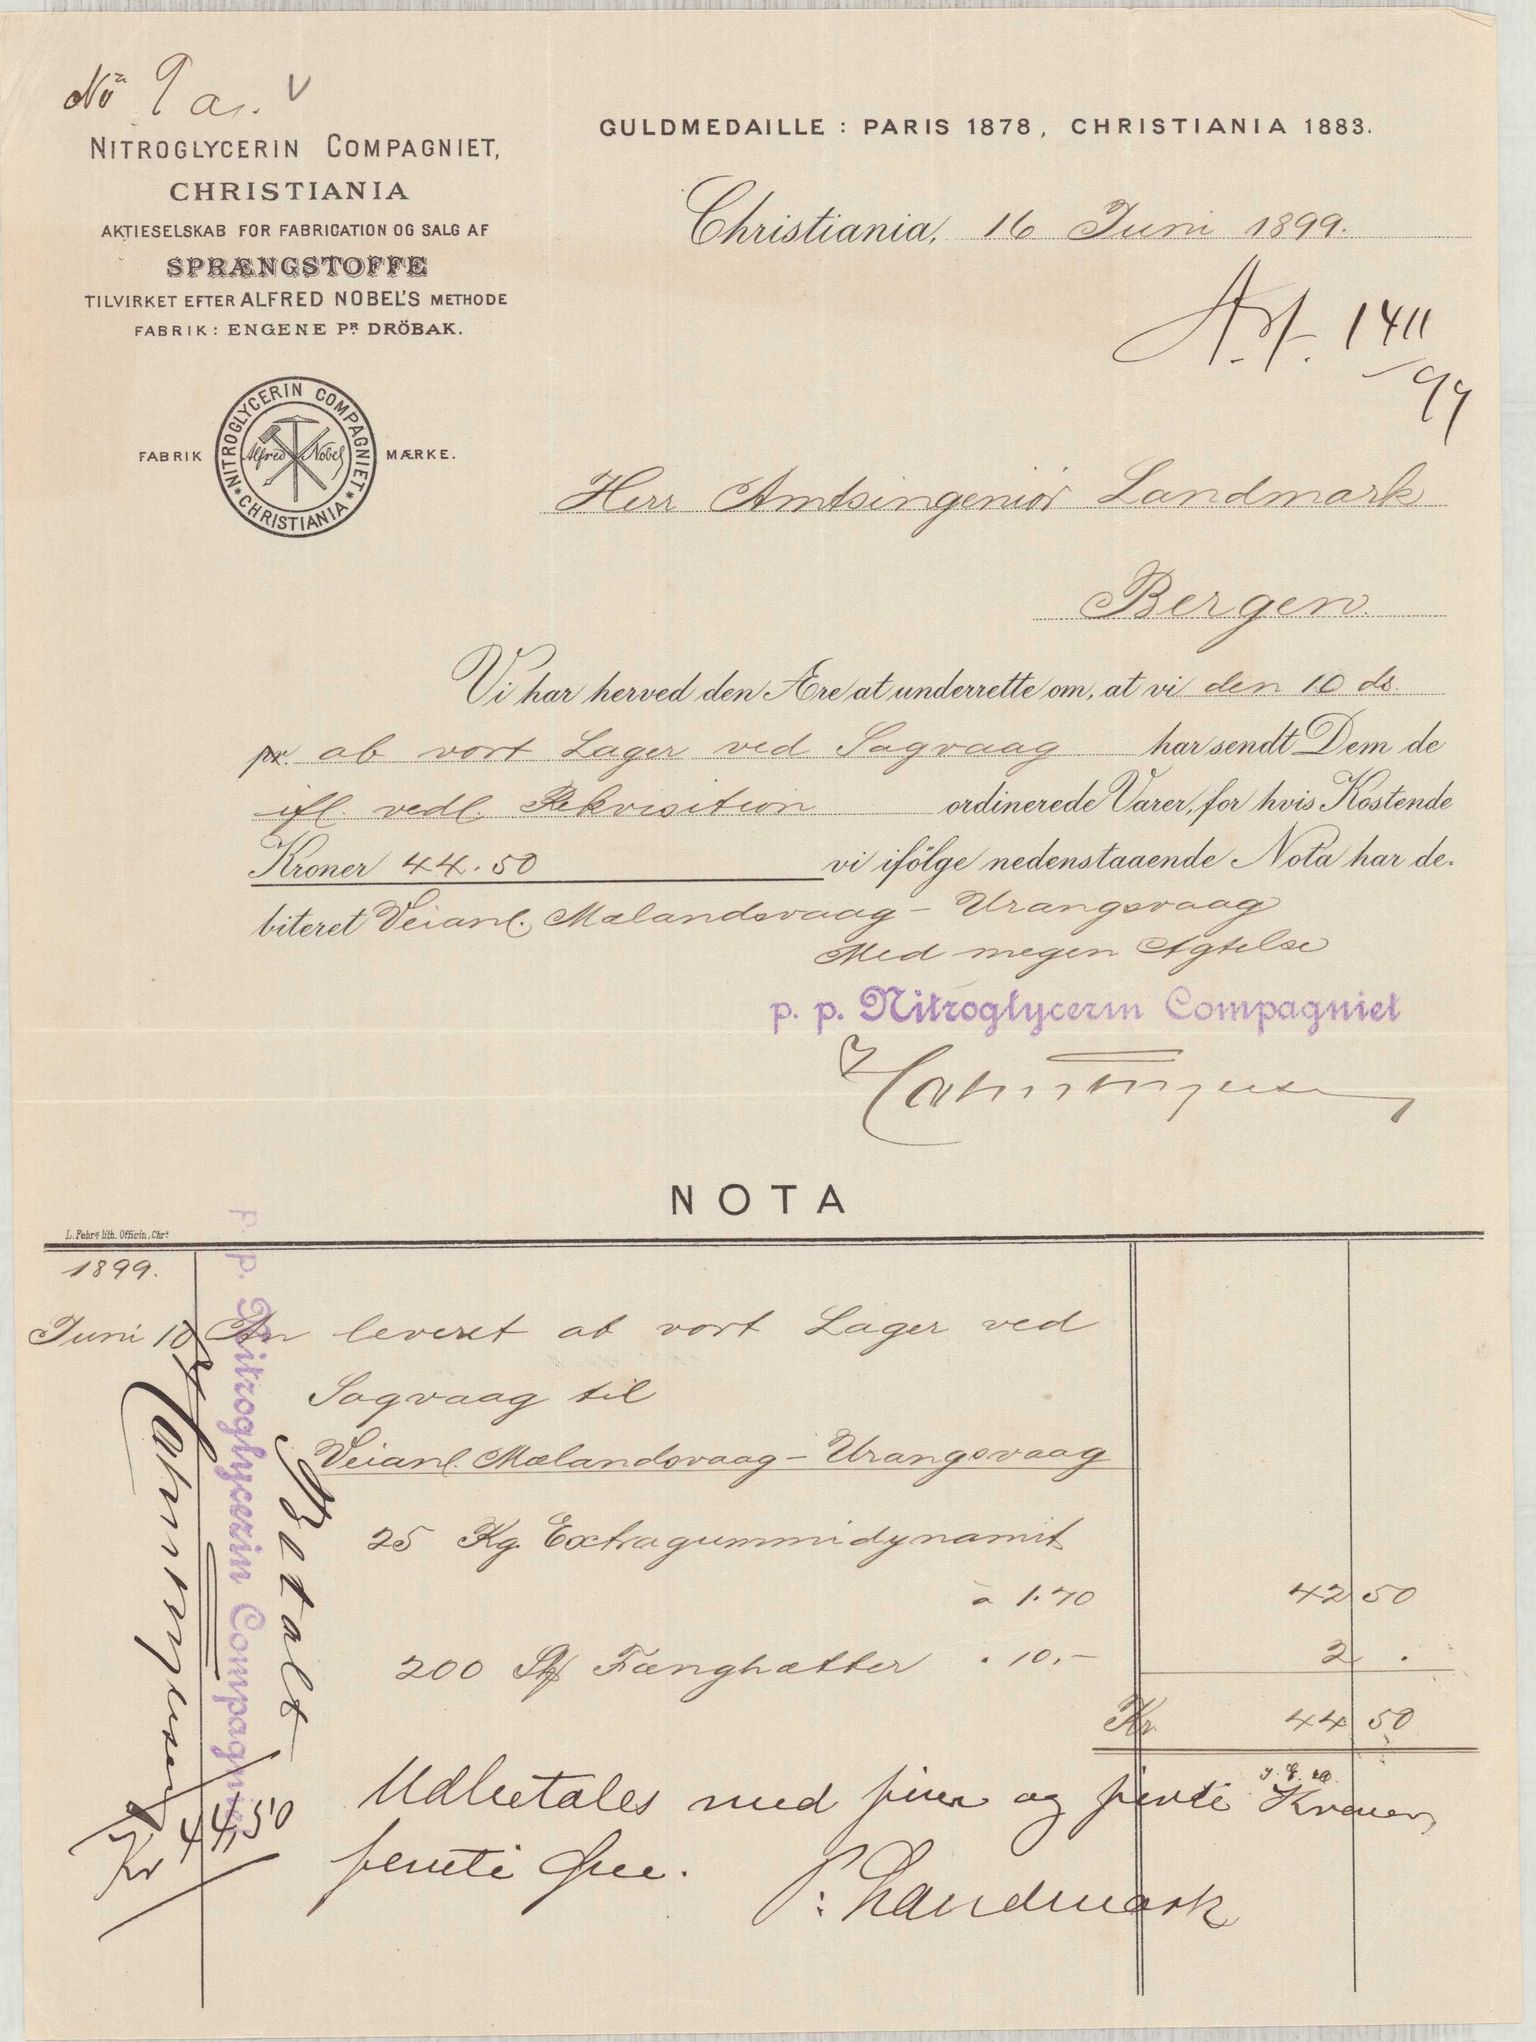 No 9 a. V
NITROGLYCERIN COMPAGNIET,
CHRISTIANIA
AKTIESELSKAB FOR FABRICATION OG SALG AF
SPRÆNGSTOFFE
TILVIRKET EFTER ALFRED NOBEL'S METHODE
FABRIK: ENGENE PR DRÖBAK.
FABRIK MÆRKE.
NITROGLYCERIN COMPAGNIET * CHRISTIANIA *
Alfred Nobel
GULDMEDAILLE: PARIS 1878, CHRISTIANIA 1883.
Christiania, 16 Juni 1899.
1411
99
Herr Amtsingeniör Landmark
Bergen
Vi har herved den Ære at underrette om, at vi den 10 ds.
pr. ab vort Lager ved Sagvaag har sendt Dem de
ifl. vedl. Rekvisition ordinerede Varer, for hvis Kostende
Kroner 44.50 vi ifölge nedenstaaende Nota har de-
biteret Veianl. Mælandsvaag - Urangsvaag
Med megen Agtelse
p. p. Nitroglycerin Compagniet
NOTA
L. Fehrs lith. Officin, Chrt
1899.
Juni 10 An leveret ab vort Lager ved
Sagvaag til
Veianl. Mælandsvaag - Urangsvaag
25 Kg. Extragummidynamit
à 1.70 42 50
200 St Fænghætter " 10.- 2 .
Kr 44 50
Udbetales med fire og firti Kroner,
femti Øre.
P. Landmark
Betalt
p. p. Nitroglycerin Compagniet
Kr 44,50